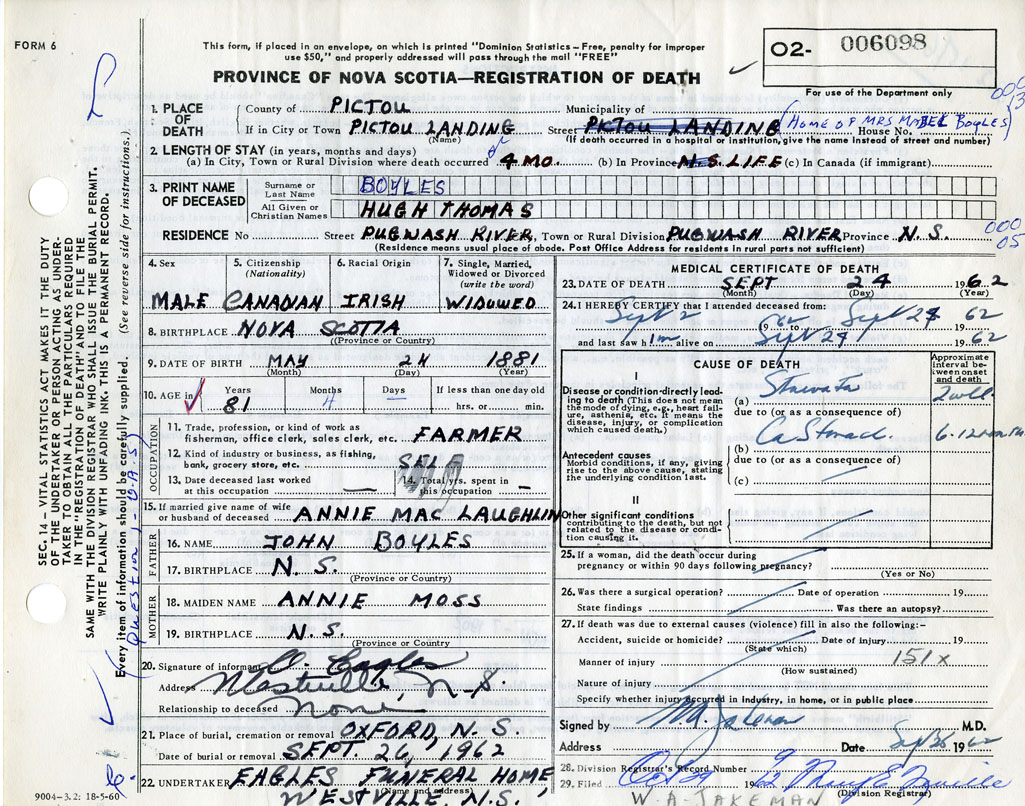 FORM 6
This form, if placed in an envelope, on which is printed "Dominion Statistics – Free, penalty for improper
use $50," and properly addressed will pass through the mail "FREE"
PROVINCE OF NOVA SCOTIA—REGISTRATION OF DEATH
O2- 006098
For use of the Department only
1. PLACE OF DEATH
County of PICTOU Municipality of
If in City or Town PICTOU LANDING Street PICTOU LANDING (HOME OF MRS MABEL BOYLES) House No.
(Name) (If death occurred in a hospital or institution, give the name instead of street and number)
2. LENGTH OF STAY (in years, months and days)
(a) In City, Town or Rural Division where death occurred 4 MO. (b) In Province N.S. LIFE (c) In Canada (if immigrant)
3. PRINT NAME OF DECEASED
Surname or Last Name BOYLES
All Given or Christian Names HUGH THOMAS
RESIDENCE No Street PUGWASH RIVER, Town or Rural Division PUGWASH RIVER Province N.S.
(Residence means usual place of abode. Post Office Address for residents in rural parts not sufficient)
000
05
4. Sex MALE
5. Citizenship (Nationality) CANADIAN
6. Racial Origin IRISH
7. Single, Married, Widowed or Divorced (write the word) WIDOWED
8. BIRTHPLACE NOVA SCOTIA
(Province or Country)
9. DATE OF BIRTH MAY 24 1881
(Month) (Day) (Year)
10. AGE in Years 81 Months 4 Days – If less than one day old hrs. or min.
OCCUPATION
11. Trade, profession, or kind of work as
fisherman, office clerk, sales clerk, etc. FARMER
12. Kind of industry or business, as fishing,
bank, grocery store, etc. SELF
13. Date deceased last worked
at this occupation —
14. Total yrs. spent in
this occupation –
15. If married give name of wife
or husband of deceased ANNIE MAC LAUGHLIN
FATHER
16. NAME JOHN BOYLES
17. BIRTHPLACE N.S.
(Province or Country)
MOTHER
18. MAIDEN NAME ANNIE MOSS
19. BIRTHPLACE N.S.
(Province or Country
20. Signature of informant O. Eagles
Address Westville, N.S.
Relationship to deceased none
21. Place of burial, cremation or removal OXFORD, N.S.
Date of burial or removal SEPT. 26, 1962
22. UNDERTAKER EAGLES FUNERAL HOME
(Name and address)
WESTVILLE, N.S.
9004–3.2: 18-5-60
MEDICAL CERTIFICATE OF DEATH
23. DATE OF DEATH SEPT 24 1962
(Month) (Day) (Year)
24. I HEREBY CERTIFY that I attended deceased from:
Sept 2 1962 Sept 24 1962
and last saw him alive on Sept 24 1962
CAUSE OF DEATH
Approximate interval between onset and death
I
Disease or condition directly leading to death (This does not mean the mode of dying, e.g., heart failure, asthenia, etc. It means the disease, injury, or complication which caused death.)
(a)
due to (or as a consequence of)
Antecedent causes
Morbid conditions, if any, giving rise to the above cause, stating the underlying condition last.
(b) Ca Stomach. 6-12
due to (or as a consequence of)
(c)
II
Other significant conditions
contributing to the death, but not related to the disease or condition causing it.
25. If a woman, did the death occur during
pregnancy or within 90 days following pregnancy?
(Yes or No)
26. Was there a surgical operation? Date of operation 19
State findings Was there an autopsy?
27. If death was due to external causes (violence) fill in also the following:–
Accident, suicide or homicide? Date of injury 19
(State which)
Manner of injury 151x
(How sustained)
Nature of injury
Specify whether injury occurred in industry, in home, or in public place
Signed by M.D.
Address Date Sept 25 1962
28. Division Registrar's Record Number 9
29. Filed 1962
(Division Registrar)
W. A. JAKEMAN
SEC. 14 – VITAL STATISTICS ACT MAKES IT THE DUTY
OF THE UNDERTAKER OR PERSON ACTING AS UNDERTAKER TO OBTAIN ALL THE PARTICULARS REQUIRED
IN THE "REGISTRATION OF DEATH" AND TO FILE THE
SAME WITH THE DIVISION REGISTRAR WHO SHALL ISSUE THE BURIAL PERMIT.
WRITE PLAINLY WITH UNFADING INK. THIS IS A PERMANENT RECORD.
Every item of information should be carefully supplied. (See reverse side for instructions.)